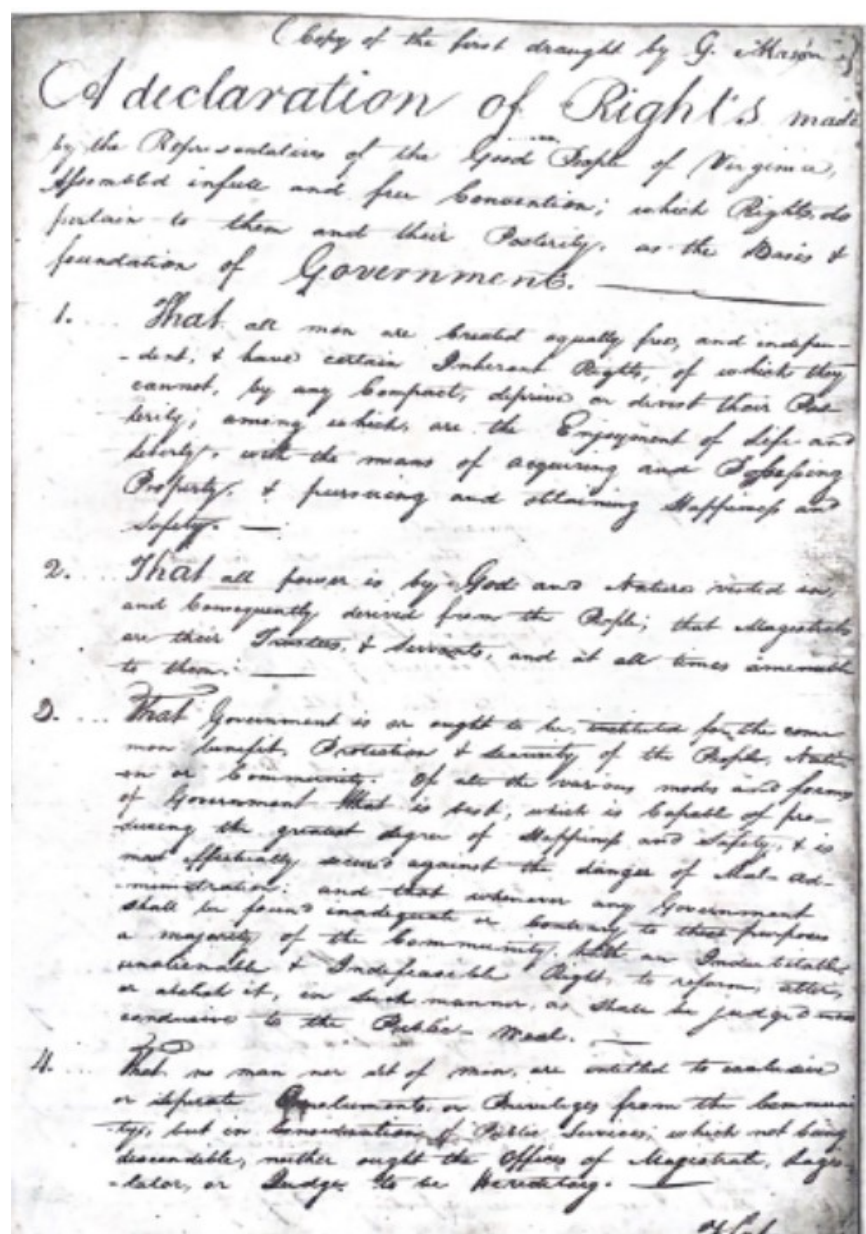 (Copy of the first draught by G. Mason.)
A declaration of Rights made
by the Representatives of the Good People of Virginia,
Assembled in full and free Convention; which Rights do
pertain to them and their Posterity, as the Basis &
foundation of Government.
1. .... That all men are Created equally free, and indepen-
-dent, & have certain Inherent Rights, of which they
cannot, by any Compact, deprive or divest their Pos-
terity; among which, are the Enjoyment of Life and
Liberty, with the means of acquiring and Possessing
Property, & pursuing and obtaining Happiness and
Safety.
2. .... That all power is by God and Nature vested in,
and Consequently derived from the People; that Magistrates
are their Trustees, & Servants, and at all times amenable
to them.
3. .... That Government is or ought to be, instituted for the com-
mon benefit, Protection & Security of the People, Nati-
on or Community. Of all the various modes and forms
of Government that is best, which is Capable of pro-
ducing the greatest degree of Happiness and Safety, & is
most effectually secured against the danger of Mal-ad-
-ministration: and that whenever any Government
shall be found inadequate or Contrary to these purposes
a majority of the Community hath an Indubitable
unalienable & Indefeasible Right, to reform, alter,
or abolish it, in such manner, as shall be judged most
conducive to the Public Weal.
4. .... That no man nor set of men, are entitled to exclusive
or seperate Emoluments or Privileges from the Communi
ty, but in Consideration of Public Services; which not being
descendible, neither ought the Offices of Magistrate, Legis-
-lator, or Judge to be Hereditary.